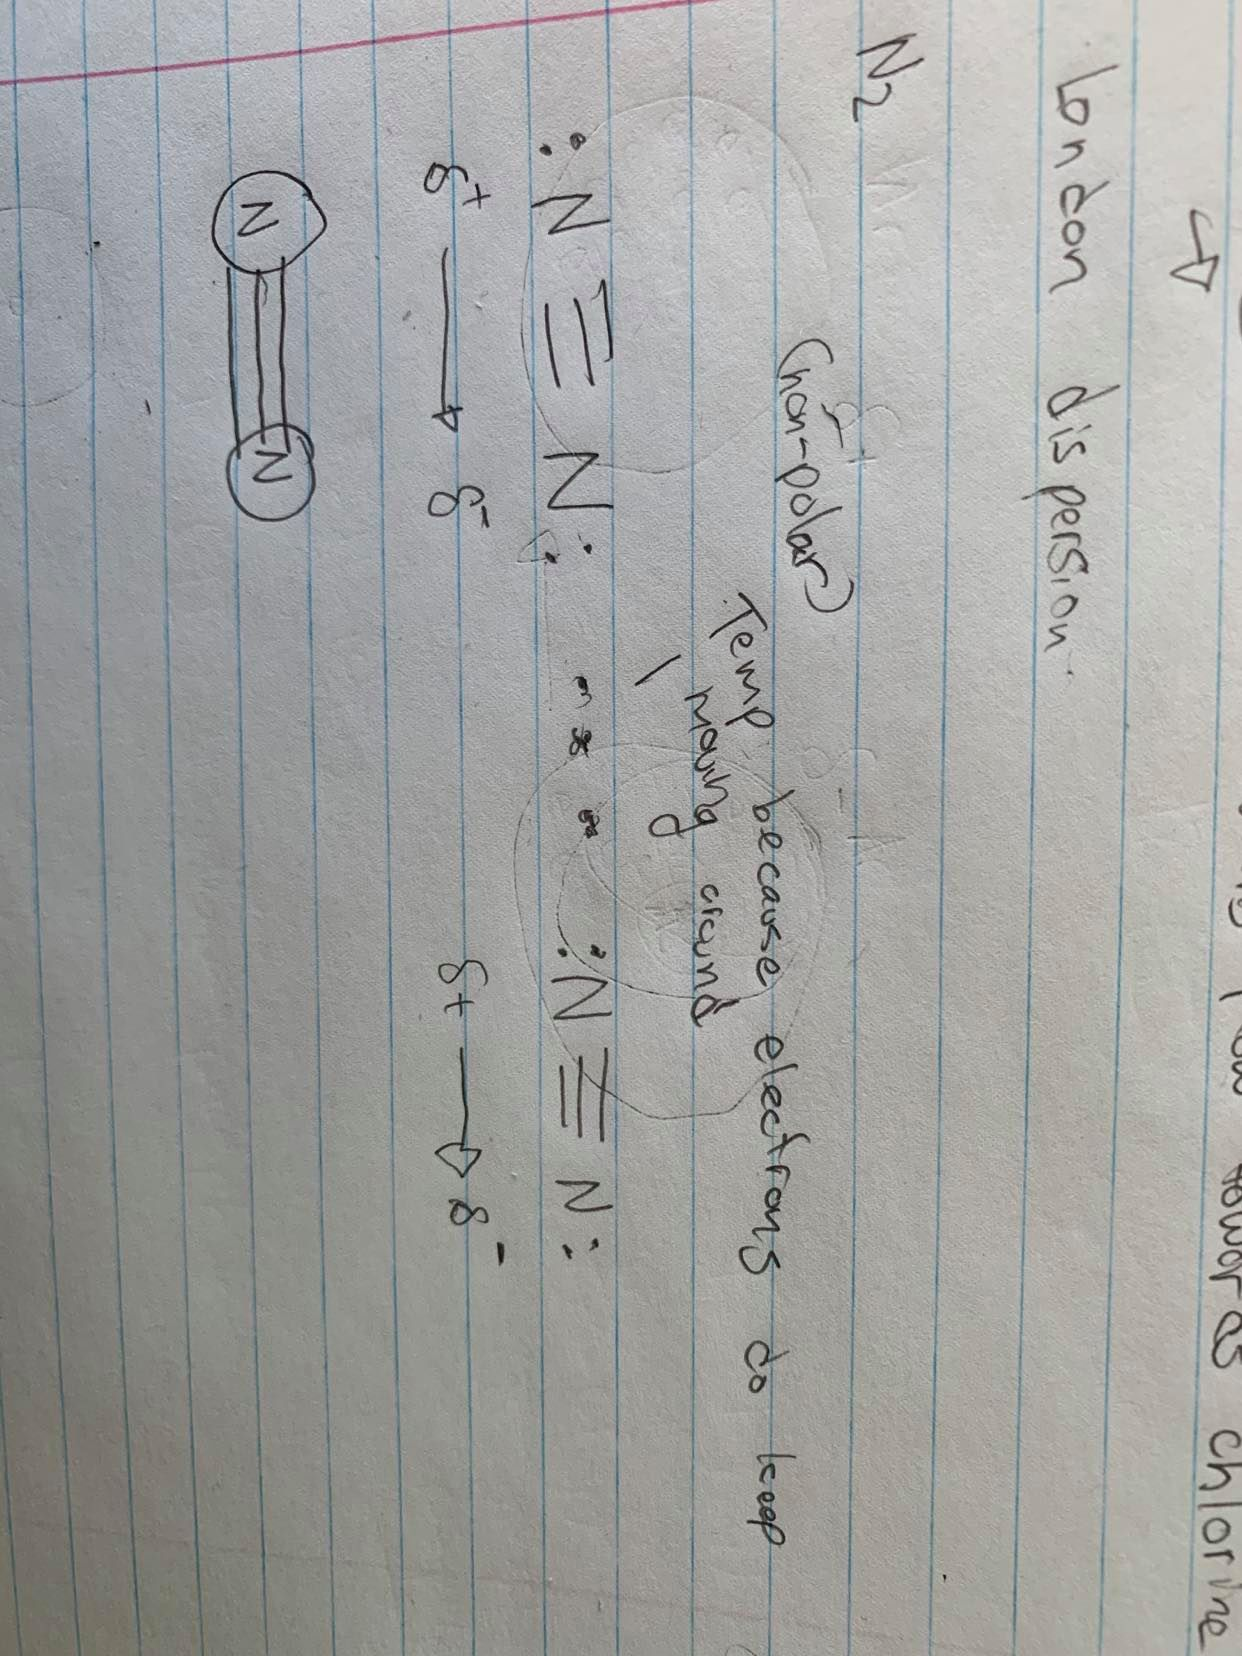 chlorine
↳
London dispersion
N2
(non-polar)
Temp. because electrons do keep
moving around
:N ≡ N: ... :N ≡ N:
δ+ → δ- δ+ → δ-
N≡N